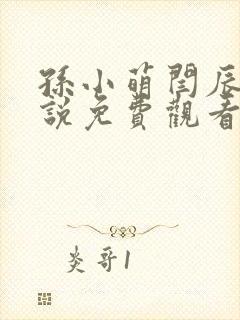 孫小萌閆辰
說免費觀看
炎哥1